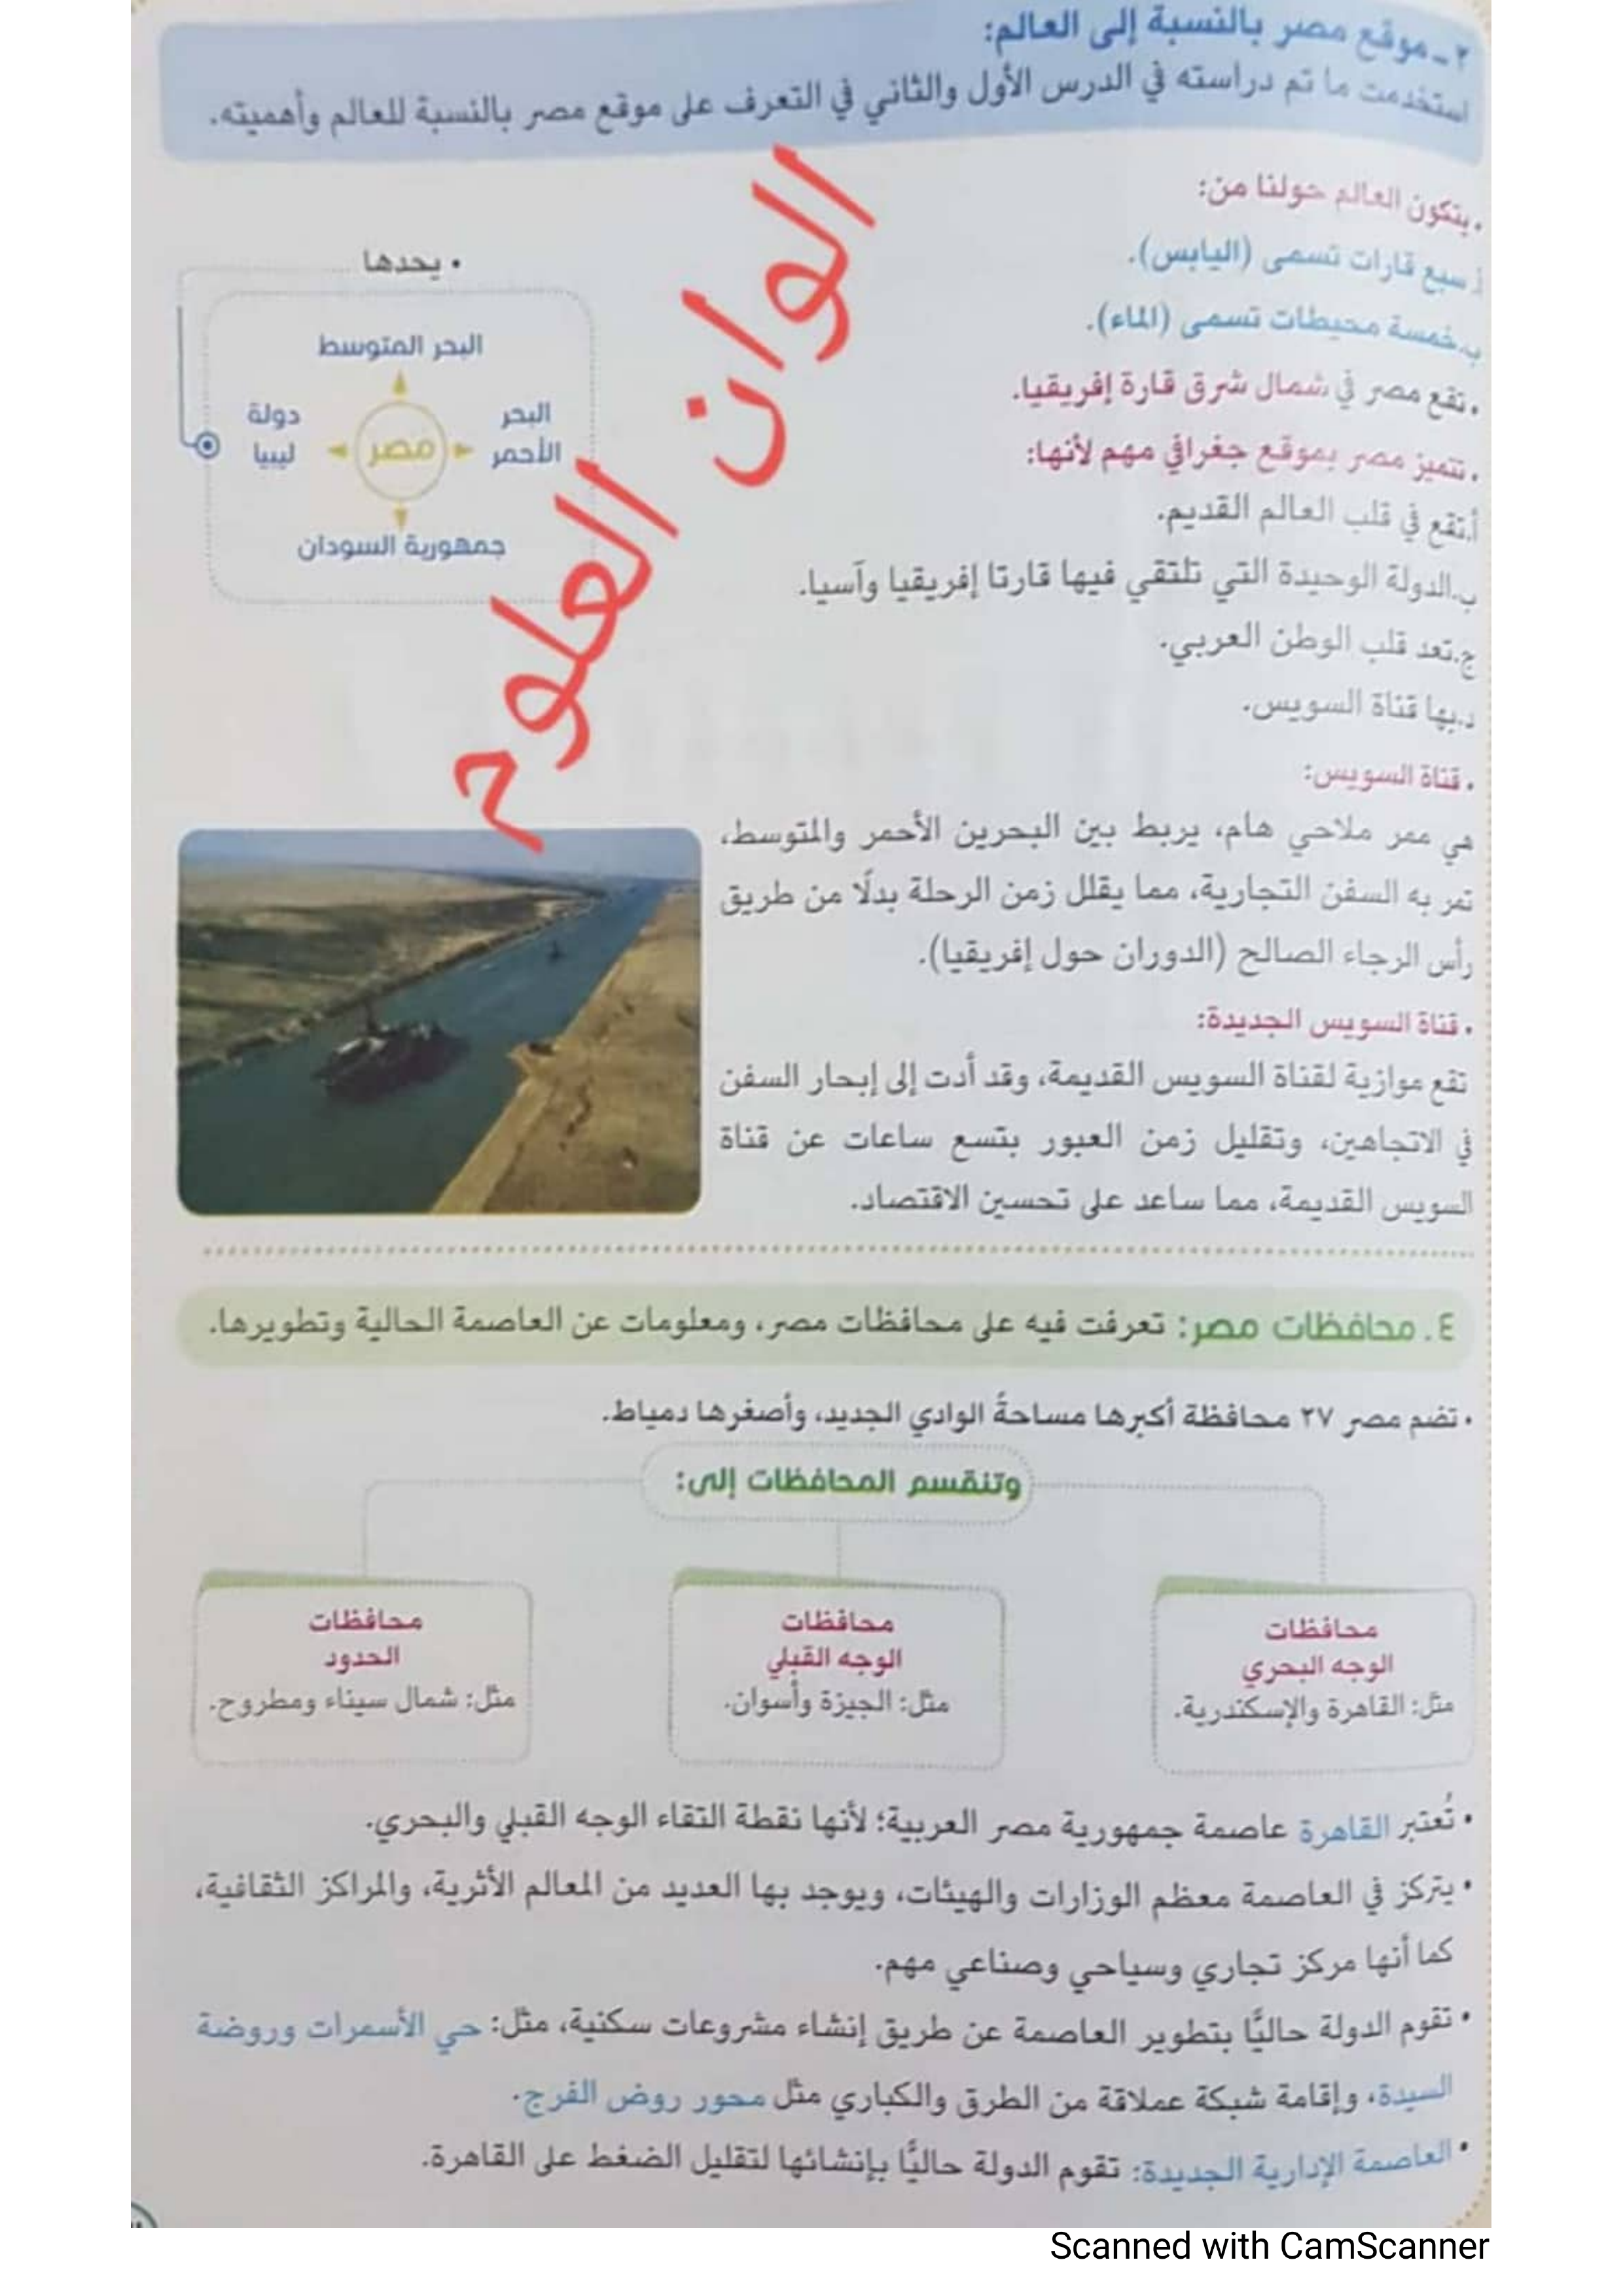 ٢ - موقع مصر بالنسبة إلى العالم:
استخدمت ما تم دراسته في الدرس الأول والثاني في التعرف على موقع مصر بالنسبة للعالم وأهميته.
• يتكون العالم حولنا من:
أ. سبع قارات تسمى (اليابس).
ب. خمسة محيطات تسمى (الماء).
• تقع مصر في شمال شرق قارة إفريقيا.
• تتميز مصر بموقع جغرافي مهم لأنها:
أ. تقع في قلب العالم القديم.
ب. الدولة الوحيدة التي تلتقي فيها قارتا إفريقيا وآسيا.
ج. تعد قلب الوطن العربي.
د. بها قناة السويس.
• يحدها
البحر المتوسط
البحر الأحمر
مصر
دولة ليبيا
جمهورية السودان
الوان العلوم
• قناة السويس:
هي ممر ملاحي هام، يربط بين البحرين الأحمر والمتوسط،
تمر به السفن التجارية، مما يقلل زمن الرحلة بدلًا من طريق
رأس الرجاء الصالح (الدوران حول إفريقيا).
• قناة السويس الجديدة:
تقع موازية لقناة السويس القديمة، وقد أدت إلى إبحار السفن
في الاتجاهين، وتقليل زمن العبور بتسع ساعات عن قناة
السويس القديمة، مما ساعد على تحسين الاقتصاد.
٤. محافظات مصر: تعرفت فيه على محافظات مصر، ومعلومات عن العاصمة الحالية وتطويرها.
• تضم مصر ٢٧ محافظة أكبرها مساحةً الوادي الجديد، وأصغرها دمياط.
وتنقسم المحافظات إلى:
محافظات
الوجه البحري
مثل: القاهرة والإسكندرية.
محافظات
الوجه القبلي
مثل: الجيزة وأسوان.
محافظات
الحدود
مثل: شمال سيناء ومطروح.
• تُعتبر القاهرة عاصمة جمهورية مصر العربية؛ لأنها نقطة التقاء الوجه القبلي والبحري.
• يتركز في العاصمة معظم الوزارات والهيئات، ويوجد بها العديد من المعالم الأثرية، والمراكز الثقافية،
كما أنها مركز تجاري وسياحي وصناعي مهم.
• تقوم الدولة حاليًّا بتطوير العاصمة عن طريق إنشاء مشروعات سكنية، مثل: حي الأسمرات وروضة
السيدة، وإقامة شبكة عملاقة من الطرق والكباري مثل محور روض الفرج.
• العاصمة الإدارية الجديدة: تقوم الدولة حاليًّا بإنشائها لتقليل الضغط على القاهرة.
Scanned with CamScanner